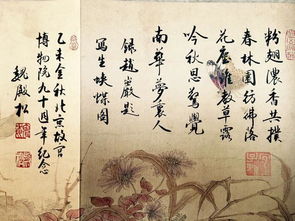 粉翅濃香共撲
春林園彷彿落
花塵雖敷草露
吟秋思驚覺
南華夢裏人
錄趙巖題
寫生蛺蝶圖
乙未金秋北京故宮
博物院九十週年紀念
魏殿松